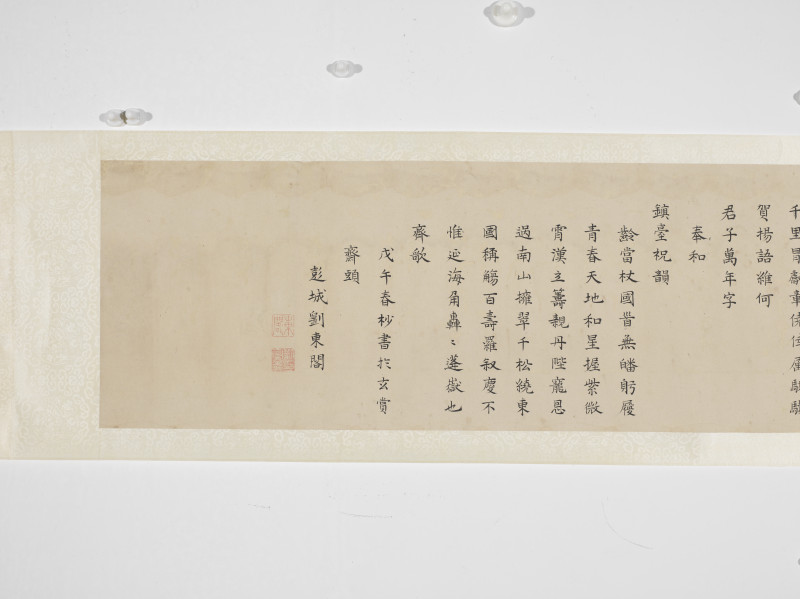 千里
賀揚語維何
君子萬年字
奉和
鎮臺祝韻
齡當杖國昔無皤躬履
青春天地和星握紫微
霄漢立籌親丹陛寵恩
過南山擁翠千松繞東
國稱觴百壽羅叙慶不
惟延海角轟〻蓬嶽也
齊歌
戊午春杪書於玄賞
齋頭
彭城劉東閣